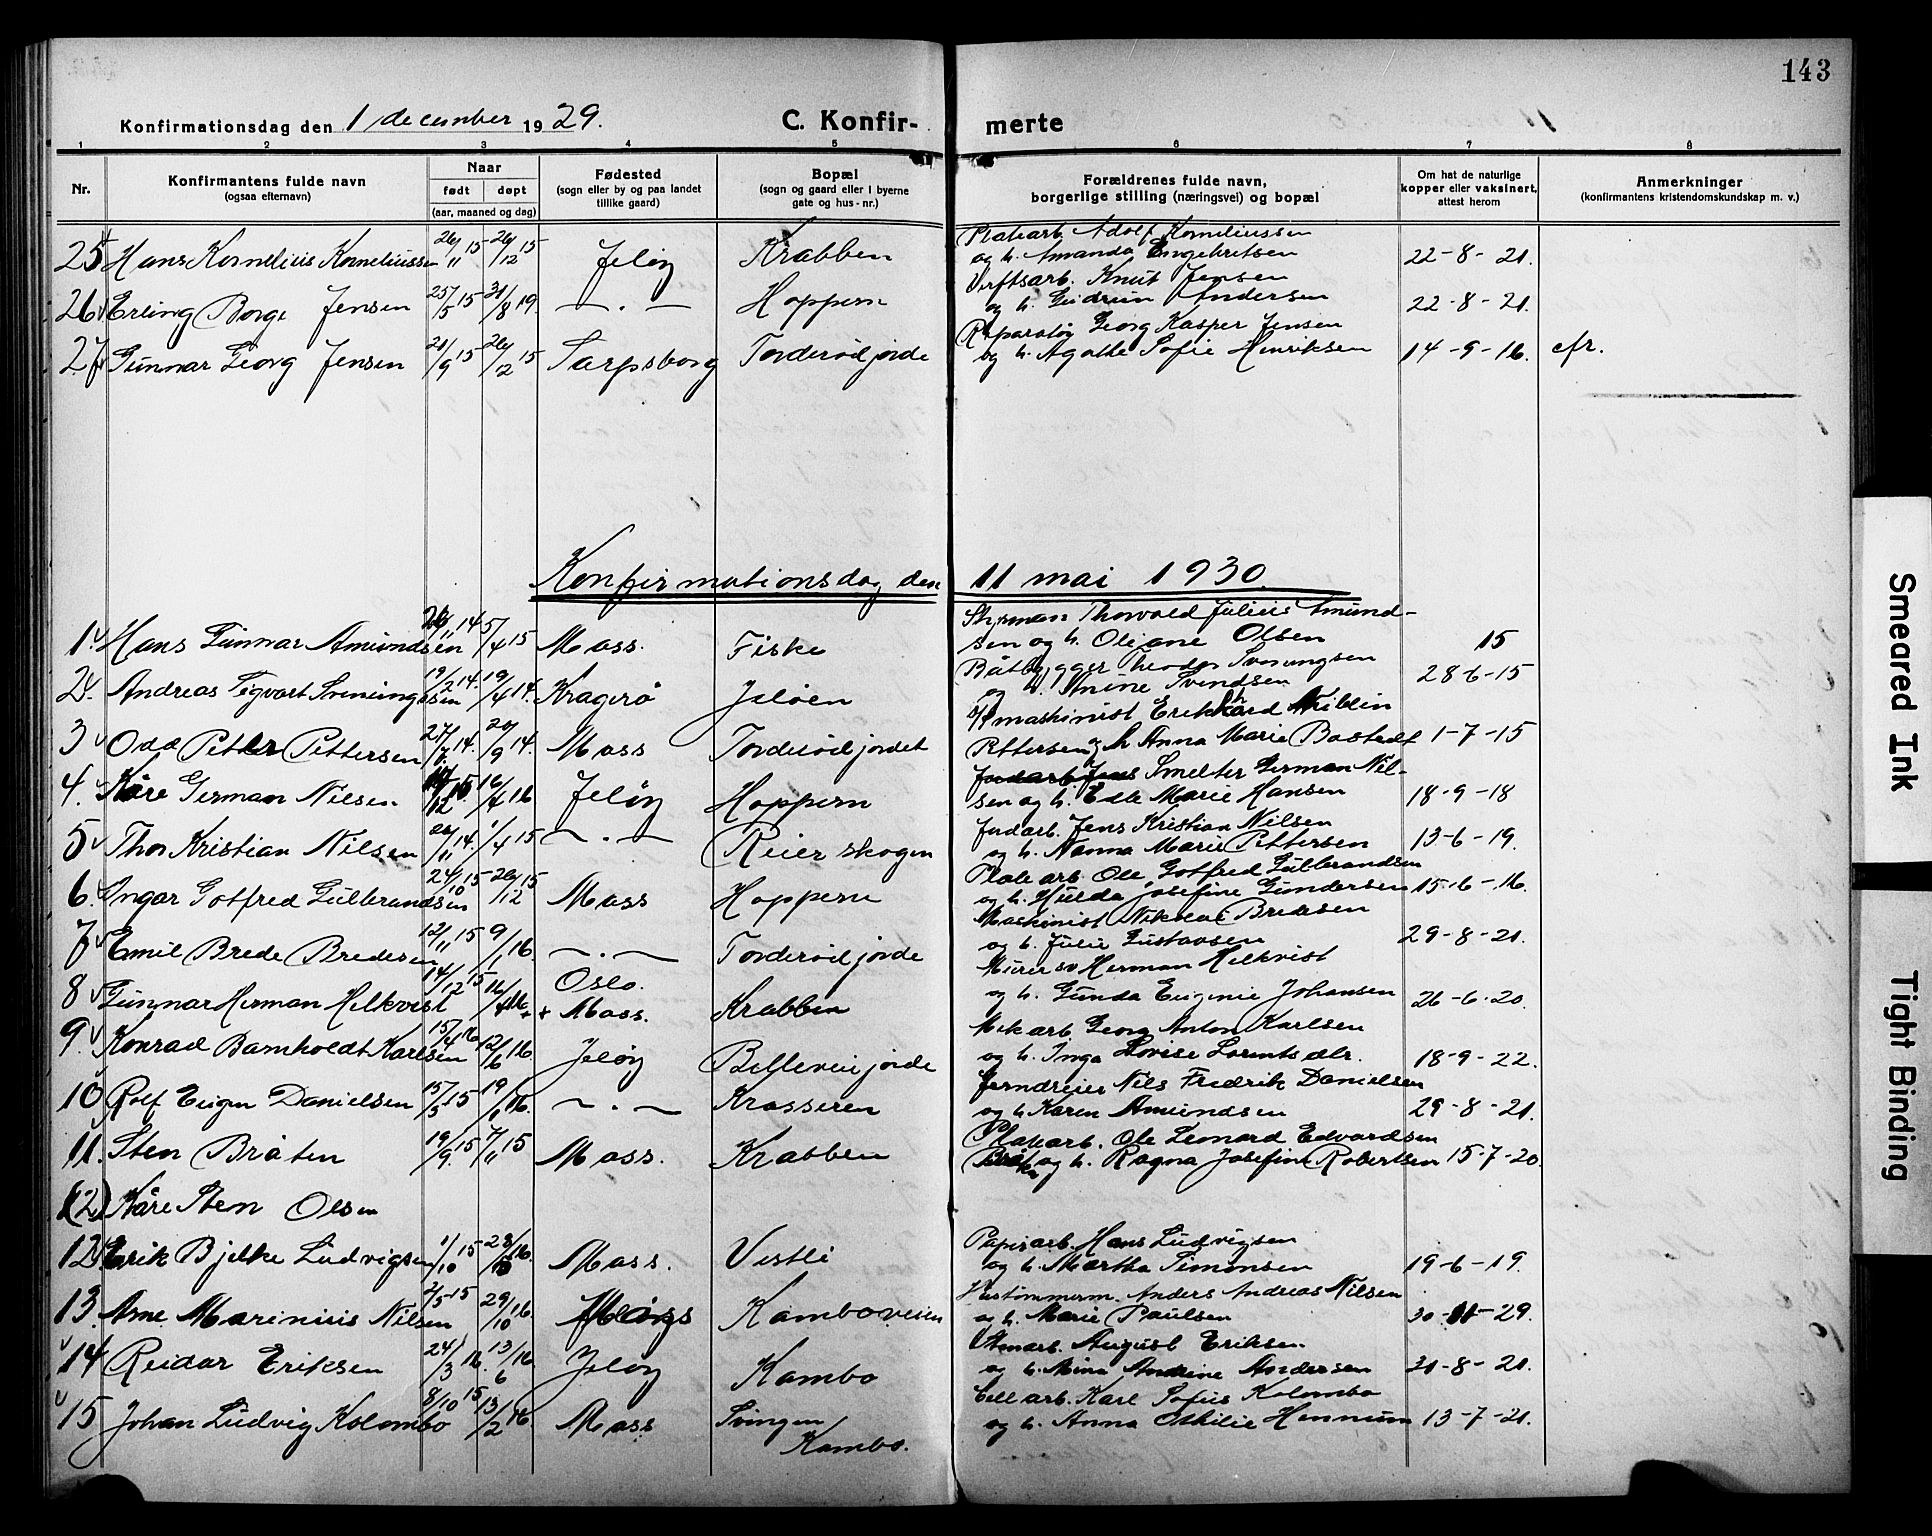 143
Konfirmationsdag den 1 december 1929.
C. Konfir-merte
1 2 3 4 5 6 7 8
Nr.
Konfirmantens fulde navn
(ogsaa efternavn)
Naar
født døpt
(aar, maaned og dag)
Fødested
(sogn eller by og paa landet
tillike gaard)
Bopæl
(sogn og gaard eller i byerne
gate og hus-nr.)
Forældrenes fulde navn,
borgerlige stilling (næringsvei) og bopæl
Om hat de naturlige
kopper eller vaksinert,
attest herom
Anmerkninger
(konfirmantens kristendomskundskap m. v.)
25 Hans Kornelius Korneliussen 26/11 15 26/12 15 Jeløy Krabben
Platearb. Adolf Korneliussen
og h. Amanda Engebretsen 22-8-21.
26 Erling Borge Jensen 25/5 15 31/8 19. —.— Hoppern
Verftsarb. Knut Jensen
og h. Gudrun Andersen 22-8-21.
27 Gunnar Georg Jensen 21/9 15 26/12 15 Sarpsborg Torderødjorde
Reparatør Georg Kasper Jensen
og h. Agathe Sofie Henriksen 14-9-16. cfr.
Konfirmationsdag den 11 mai 1930
1. Hans Gunnar Amundsen 14 5/4 15 Moss. Fiske
Styrman Thorvald Julius Amund-
sen og h. Oljane Olsen 15
2. Andreas Sigvart Sveningsen 19/2 14. 19/4 14. Kragerö Jelöen
Båtbygger Theodor Sveningsen
og h. Anine Svendsen 28 6-15
3 Odd Petter Pettersen 27/7 14. 20/9 14. Moss Torderødjordet
maskinist Erik
Pettersen og h Anna Marie Bastedt 1-7-15
4. Kåre German Nilsen 15 16/4 16 Jeløy Hoppern
Smelter German Nil-
sen og h. Edle Marie Hansen 18-9-18
5 Thor Kristian Nilsen 14. 1/4 15 —.— Reierskogen
Jordarb. Jens Kristian Nilsen
og h. Nanna Marie Pettersen 13-6-19.
6. Ingar Gotfred Gulbrandsen 24/10 15 26/12 15 Moss Hoppern
Platearb. Ole Gotfred Gulbrandsen
og h. Hulda Josefine Gundersen 15-6-16.
7 Emil Brede Bredesen 12/11 15 9/1 16. —.— Torderødjorde
Maskinist Nikolai Bredesen
og h. Julie Gustavsen 29-8-21.
8 Gunnar Herman Helkvist 14/12 15 16/4 16 Oslo. + Moss. Krabben
Murersv Herman Helkvist
og h. Gunda Eugenie Johansen 26-6-20.
9. Konrad Barnholdt Karlsen 15/4 16 12/6 16. Jeløy Bellevuejorde
Mek arb. Georg Anton Karlsen
og h. Inga Lovise Lorentsdtr. 18-9-22.
10 Rolf Eugen Danielsen 15/5 15 19/1 16. —.— Krosseren
Jerndreier Nils Fredrik Danielsen
og h Karen Amundsen 29-8-21.
11. Sten Bråten 19/9. 15 7/11 15 Moss. Krabben
Platearb. Ole Leonard Edvardsen
og h. Ragna Josefine Robertsen 15-7-20.
(12) Kåre Sten Olsen
12. Erik Bjelke Ludvigsen 1/10 15 23/ 16. Moss. Vestli
Papirarb. Hans Ludvigsen
og h. Martha Simonsen 19-6-19.
13. Arne Marinius Nilsen 2/5 15 29/10 16 Kamboveien
Hustømmerm. Anders Andreas Nilsen
og h. Marie Paulsen 30-11-29.
14 Reidar Eriksen 24/3 16. 13/6 16 Jeløy Kambo
Stenarb. August Eriksen
og h. Mina Andrine Andersen 31-8-21.
15 Johan Ludvig Kolombo 8/10 15 13/2 16 Moss Svingen
Kambo.
Cell arb. Karl Sofus Kolombo
og h. Anna Othilie Hennum 13-7-21.
Smeared Ink
Tight Binding